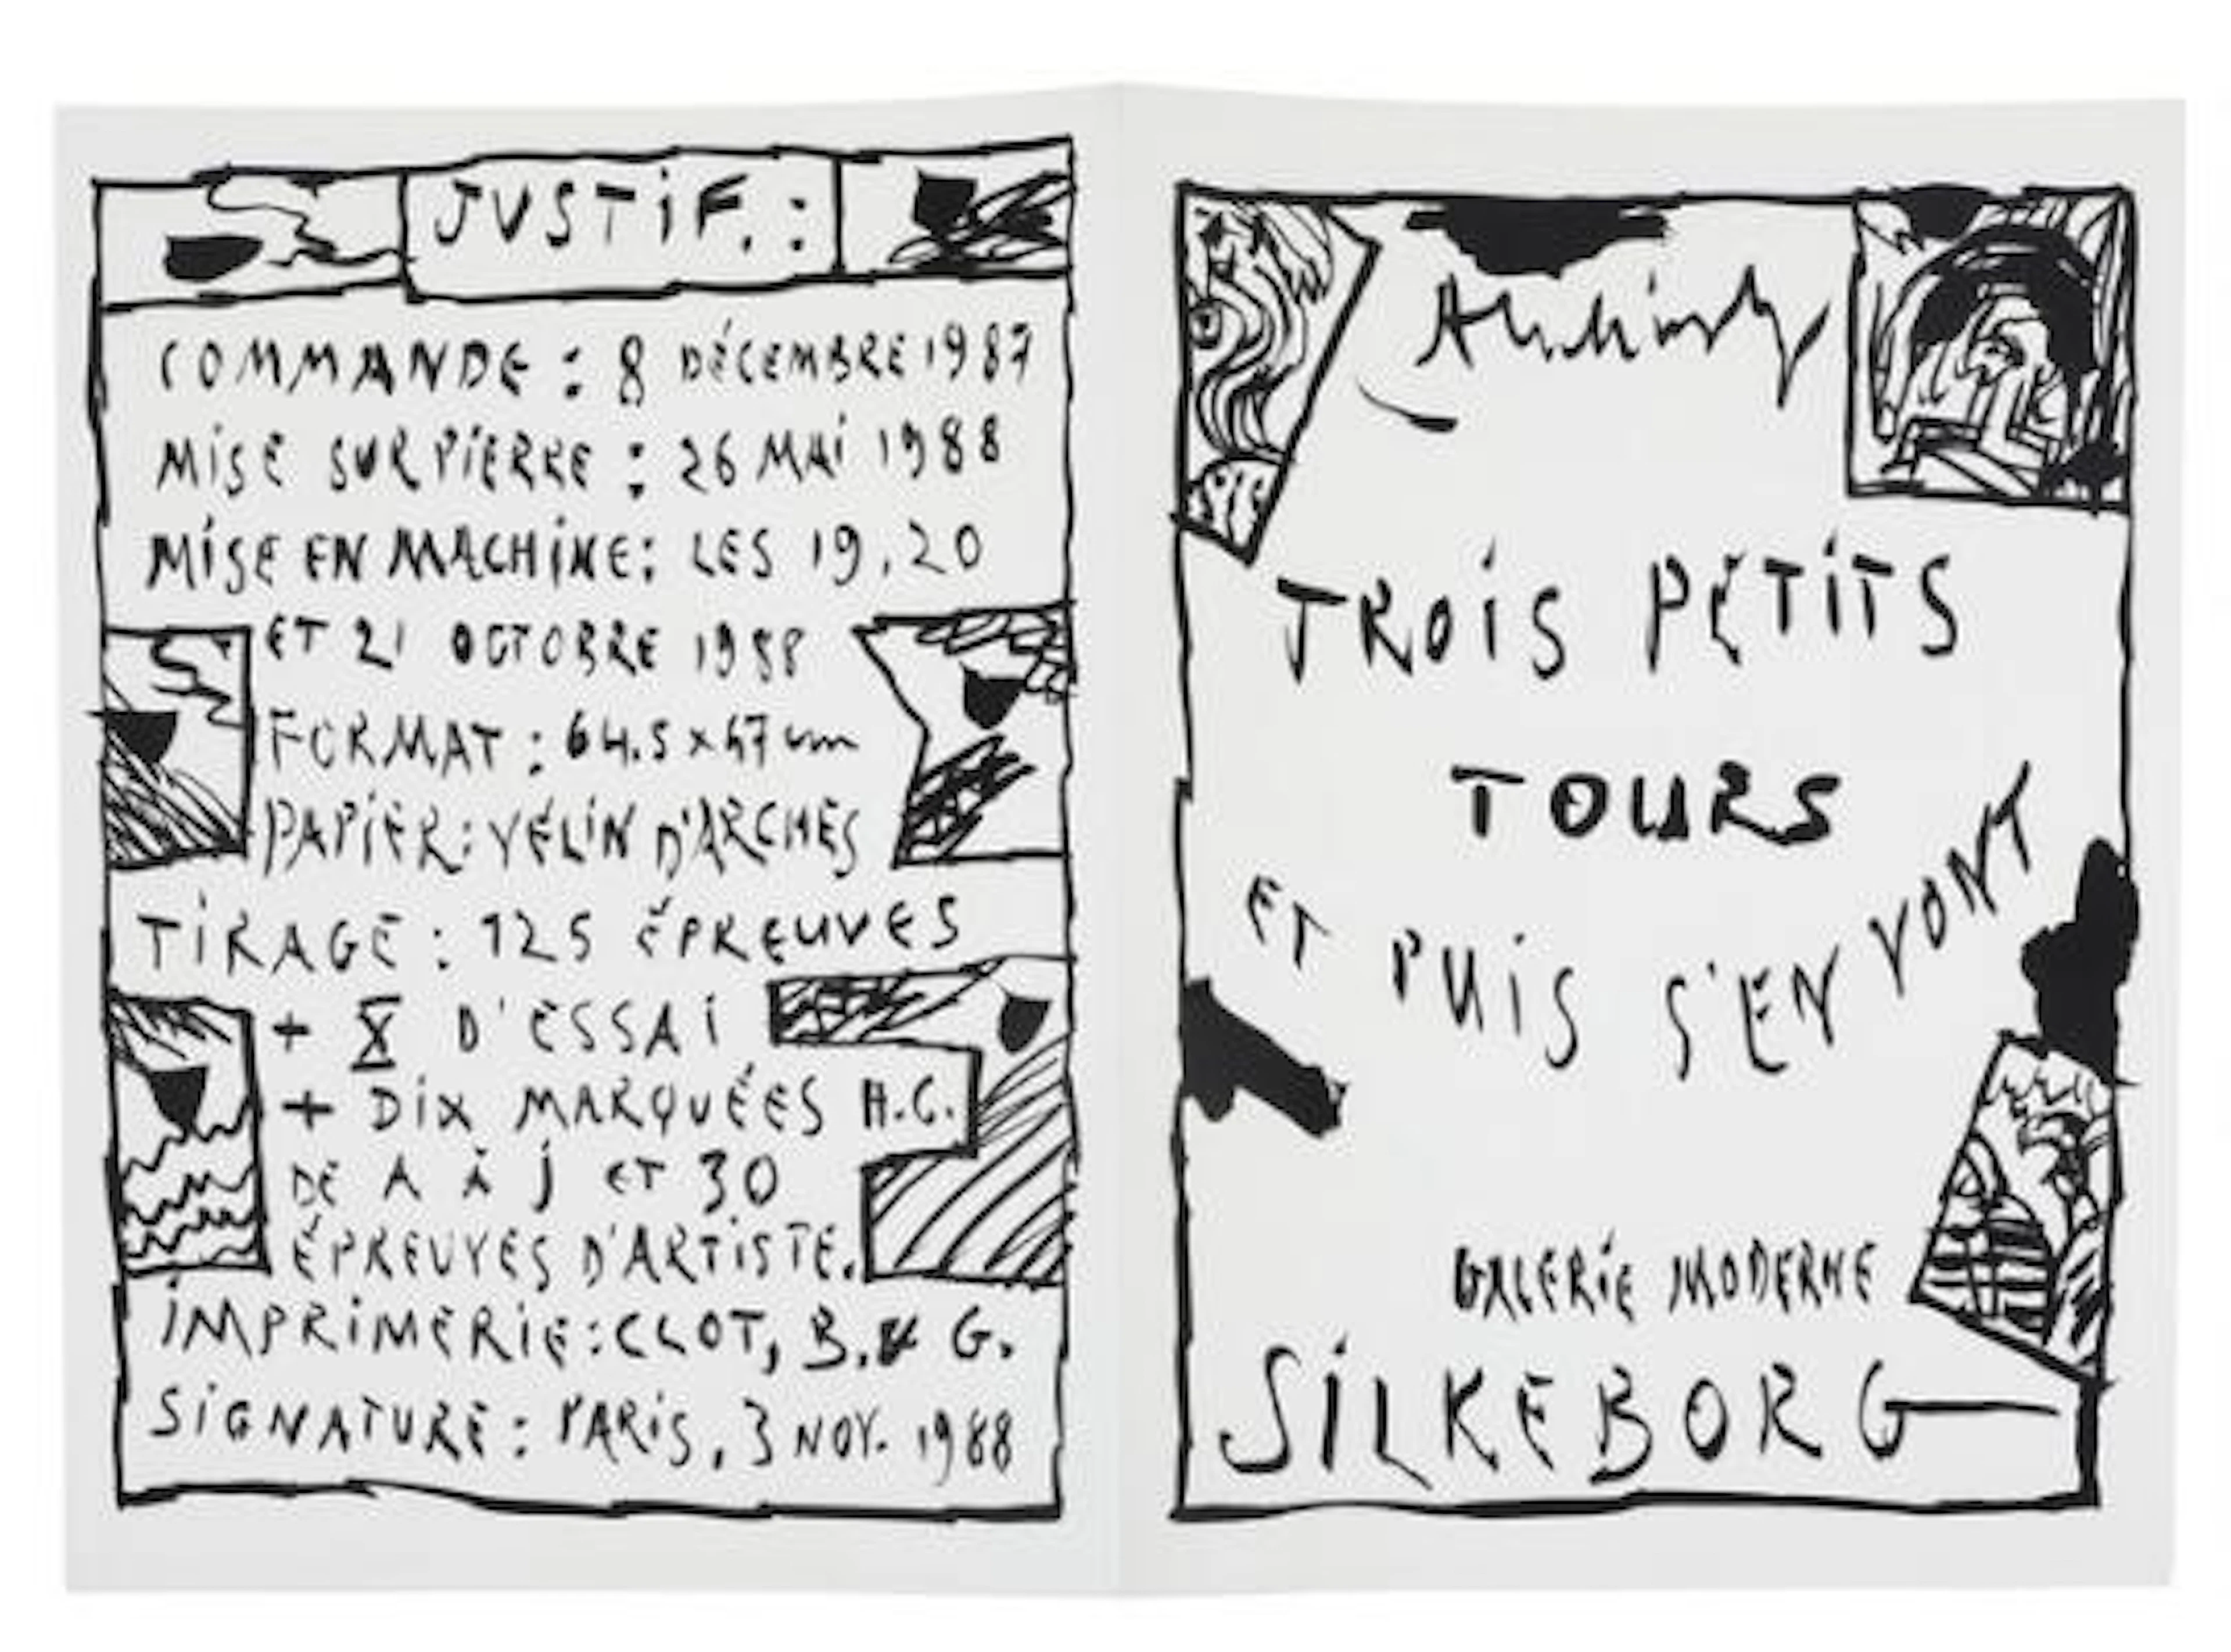 JUSTIF. :
COMMANDE : 8 DÉCEMBRE 1987
MISE SUR PIERRE : 26 MAI 1988
MISE EN MACHINE : LES 19, 20
ET 21 OCTOBRE 1988
FORMAT : 64.5 x 47 cm
PAPIER : VÉLIN D'ARCHES
TIRAGE : 125 ÉPREUVES
+ X D'ESSAI
+ DIX MARQUÉES H.C.
DE A À J ET 30
ÉPREUVES D'ARTISTE.
IMPRIMERIE : CLOT, B. & G.
SIGNATURE : PARIS, 3 NOV. 1988
Alechinsky
TROIS PETITS
TOURS
ET PUIS S'EN VONT
GALERIE MODERNE
SILKEBORG